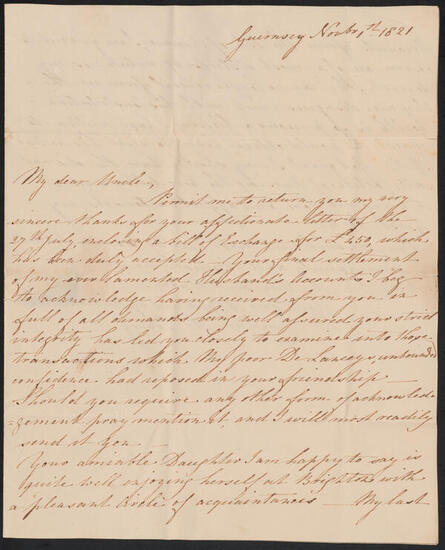 Guernsey Novbr 1st 1821
My dear Uncle,
Permit me to return you my very
sincere thanks for your affectionate letter of the
27th July enclosing a bill of Exchange for £450, which
has been duly accepted. Your final settlement
of my ever lamented Husband's Accounts I beg
to acknowledge having received from you in
full of all demands being well assured your strict
integrity has led you closely to examine into those
transactions which My poor De Lancey's unbounded
confidence had reposed in your friendship
Should you require any other form of acknowled
=gement pray mention it and I will most readily
send it you —
Your amiable Daughter I am happy to say is
quite well enjoying herself at Brighton with
a pleasant circle of acquaintances — My last